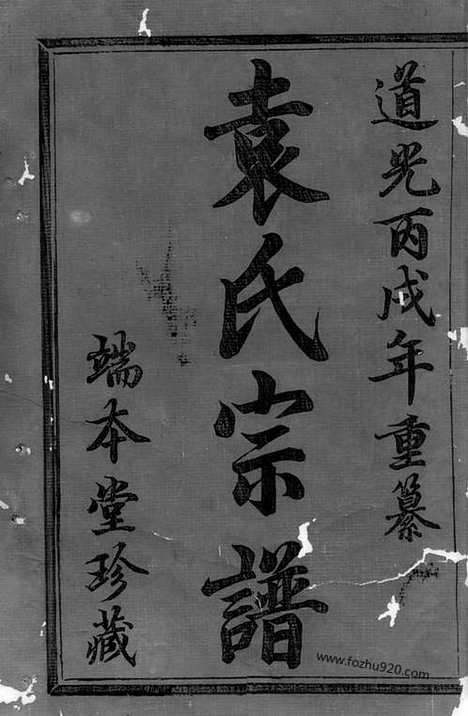 道光丙戌年重纂
袁氏宗譜
端本堂珍藏
www.fozhu920.com